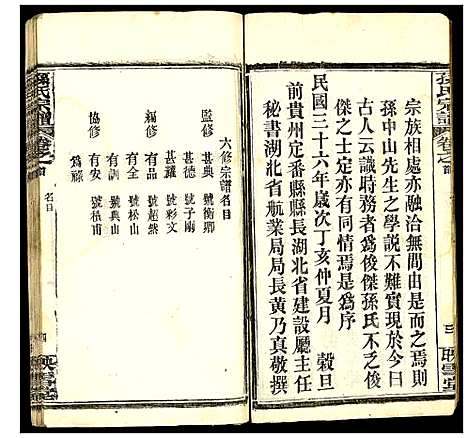 孫氏宗譜 卷之首
三 映雪堂
宗族相處亦融洽無間由是而之焉則
孫中山先生之學說不難實現於今日
古人云識時務者為俊傑孫氏不乏俊
傑之士定亦有同情焉是為序
民國三十六年歲次丁亥仲夏月 穀旦
前貴州定番縣縣長湖北省建設廳主任
秘書湖北省航業局局長黃乃真敬撰
六修宗譜名目
監修 甚典 號衡卿
甚德 號子嗣
甚霖 號彩文
編修 有品 號超然
有全 號松山
有訓 號典山
協修 有安 號植甫
為藤
孫氏宗譜 卷之首 名目
四 映雪堂